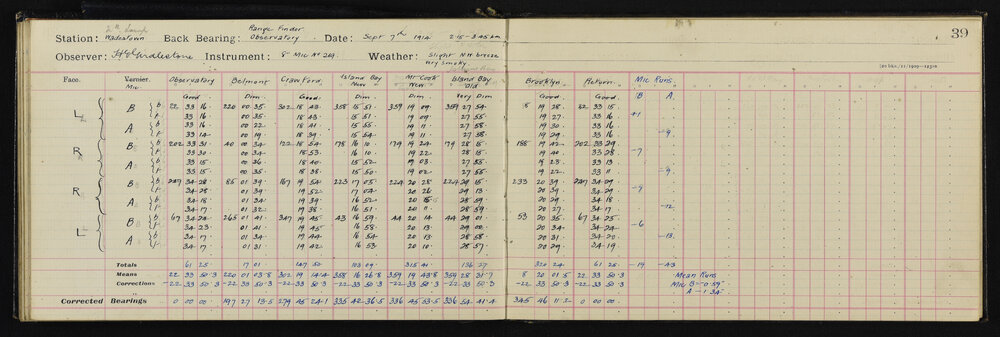 39
Range Finder
Station: Wadestown Back Bearing: Observatory. Date: Sept 7th 1914 2.15-3.45 p.m.
Observer: Instrument: 8" Mic No Weather: Slight NW breeze
Very smoky.
Face. Vernier. Observatory Belmont Crawford Island Bay New Mt Cook New Island Bay Old Brooklyn Return Mic Runs
Mic B A
Good. Dim. Good. Dim. Dim. Very Dim Good. Good.
L B b 22 33 16 220 00 35 302 18 43 358 15 51 359 19 09 359 27 54 8 19 28 22 33 15
f 33 16 00 35 18 43 15 51 19 09 27 55 19 27 33 16 +1
A b 33 16 00 22 18 41 15 55 19 11 27 58 19 30 33 16
f 33 14 00 19 18 39 15 54 19 11 27 58 19 29 33 16 -9
R B b 202 33 31 40 00 34 122 18 54 178 16 10 179 19 24 179 28 15 188 19 42 202 33 29
f 33 30 00 34 18 53 16 10 19 22 28 15 19 40 33 28 -7
A b 33 15 00 36 18 40 15 52 19 03 27 55 19 23 33 13
f 33 15 00 35 18 38 15 50 19 02 27 55 19 22 33 11 -9
R B b 247 34 28 85 01 39 167 19 54 223 17 05 224 20 28 224 29 15 233 20 39 247 34 29
f 34 28 01 39 19 52 17 04 20 26 29 13 20 39 34 29 -9
A b 34 18 01 34 19 39 16 52 20 15 28 59 20 29 34 18
f 34 17 01 32 19 38 16 51 20 11 28 59 20 27 34 17 -12
L B b 67 34 24 265 01 41 347 19 45 43 16 59 44 20 14 44 29 01 53 20 35 67 34 25
f 34 23 01 41 19 45 16 58 20 13 29 00 20 34 34 24 -6
A b 34 17 01 34 19 44 16 54 20 13 28 58 20 31 34 20
f 34 17 01 31 19 42 16 53 20 10 28 57 20 29 34 19 -13
Totals 61 25 17 01 315 41 136 27 61 25 -19 -43
Means 22 33 50.3 220 01 03.8 302 19 14.4 358 16 26.8 359 19 43.8 359 28 31.7 8 20 01.5 22 33 50.3 Mean Runs
Corrections -22 33 50.3 -22 33 50.3 -22 33 50.3 -22 33 50.3 -22 33 50.3 -22 33 50.3 -22 33 50.3 -22 33 50.3 Mic B -0.59"
A -1.34
Corrected Bearings 0 00 00 197 27 13.5 279 45 24.1 335 42 36.5 336 45 53.5 336 54 41.4 345 46 11.2 0 00 00